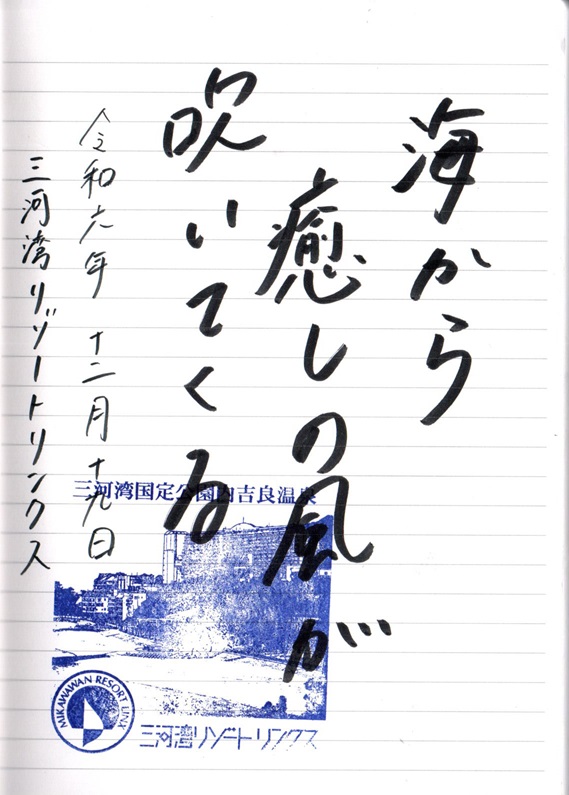 海から
癒しの風が
吹いてくる
令和六年 十二月十九日
三河湾リゾートリンクス
三河湾国定公園内吉良温泉
MIKAWAWAN RESORT LINX
三河湾リゾートリンクス